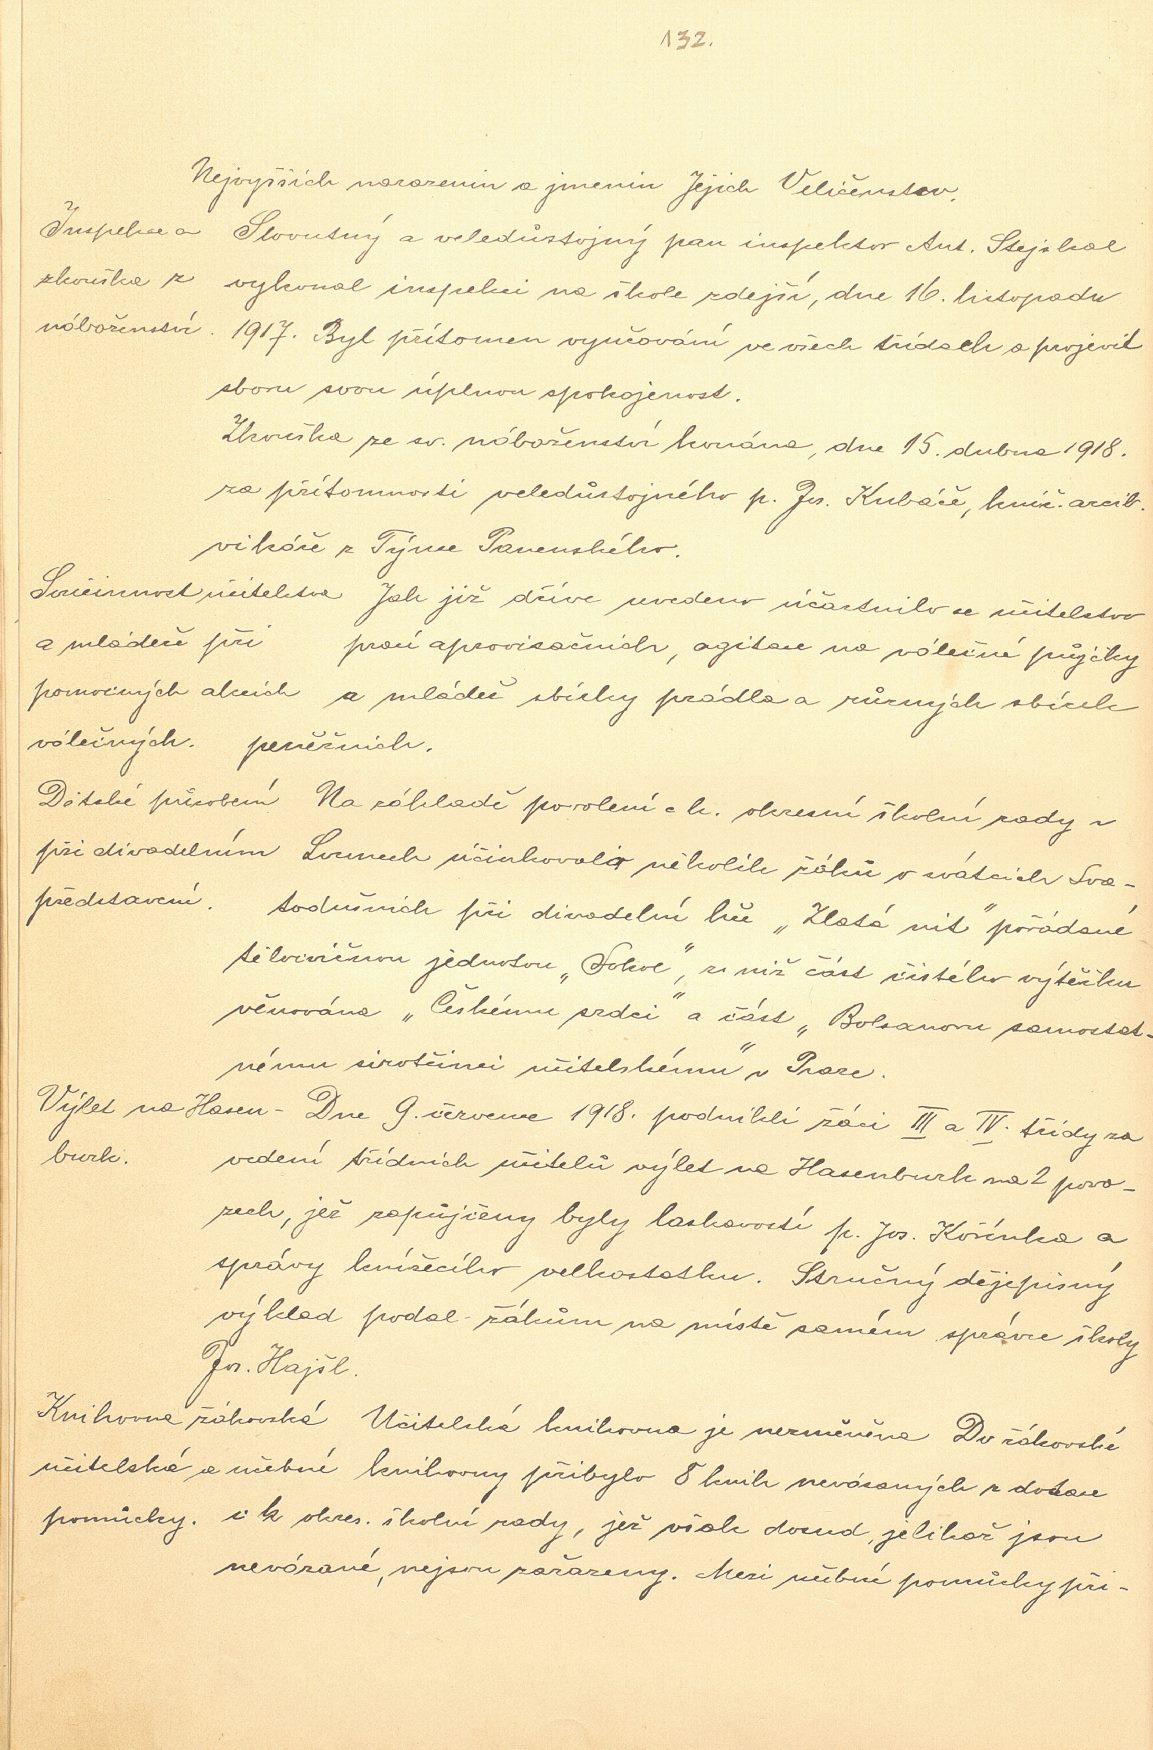 132.
Nejvyšších narozenin a jmenin Jejich Veličenstev.
Inspekce a Slovutný a veledůstojný pan inspektor Ant. Stejskal
zkouška z vykonal inspekci na škole zdejší, dne 16. listopadu
náboženství. 1917. Byl přítomen vyučování ve všech třídách a projevil
sboru svou úplnou spokojenost.
Zkouška ze sv. náboženství konána, dne 15. dubna 1918.
za přítomnosti veledůstojného p. Jos. Kubáče, kníž. arcib.
vikáře z Týnce Panenského.
Součinnost učitelstva Jak již dříve uvedeno účastnilo se učitelstvo
a mládeže při prací aprovisačních, agitace na válečné půjčky
pomocných akcích a mládež sbírky prádla a různých sbírek
válečných. peněžních.
Dětské působení Na základě povolení c k. okresní školní rady v
při divadelním Lounech účinkovalo několik žáků o svátcích Sva-
představení. todušních při divadelní hře „Zlatá nit" pořádané
tělocvičnou jednotou „Sokol", z níž část čistého výtěžku
věnována „Českému srdci" a část „Bolzanovu samostat-
nému sirotčinci učitelskému" v Praze.
Výlet na Hasen- Dne 9. července 1918. podnikli žáci III a IV. třídy za
burk. vedení třídních učitelů výlet na Hasenburk na 2 povo-
zech, jež zapůjčeny byly laskavostí p. Jos. Kořínka a
správy knížecího velkostatku. Stručný dějepisný
výklad podal žákům na místě samém správce školy
Jos. Hajšl.
Knihovna žákovská Učitelská knihovna je nezměněna Do žákovské
učitelská a učebné knihovny přibylo 8 knih nevázaných z dotace
pomůcky. c k okres. školní rady, jež však dosud, jelikož jsou
nevázané, nejsou zařazeny. Mezi učebné pomůcky při-